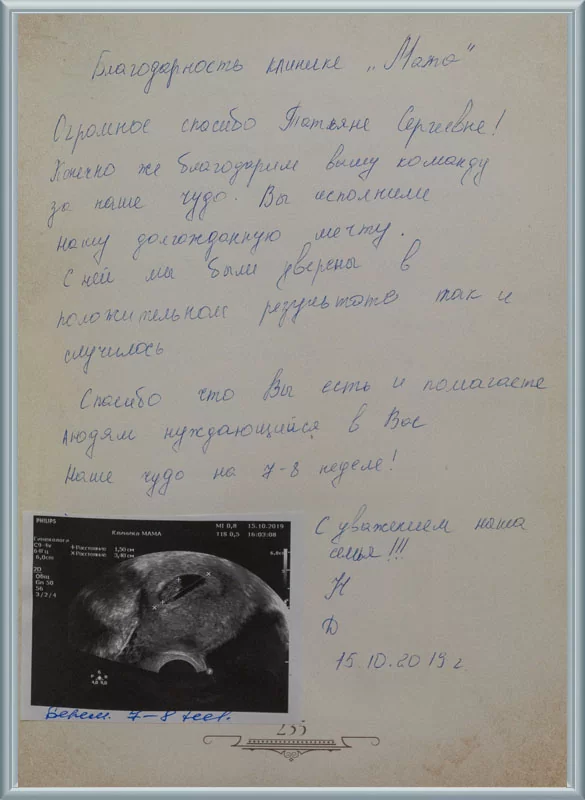 Благодарность клинике „Мама"
Огромное спасибо Татьяне Сергеевне!
Конечно же благодарим вашу команду
за наше чудо. Вы исполнили
нашу долгожданную мечту.
С ней мы были уверены в
положительном результате так и
случилось
Спасибо что Вы есть и помагаете
людям нуждающийся в Вас
Наше чудо на 7-8 неделе!
С уважением наша
семья!!!
Н
Д
15.10.2019 г.
PHILIPS
Клиника МАМА
MI 0,8 15.10.2019
TIS 0,5 16:03:08
Гинекология
C9-4v
64Гц
6,0cm
+ Расстояние 1,50 см
× Расстояние 3,40 см
6,0см
2D
Общ
Gn 50
56
3/2/4
Берем. 7-8 нед.
235